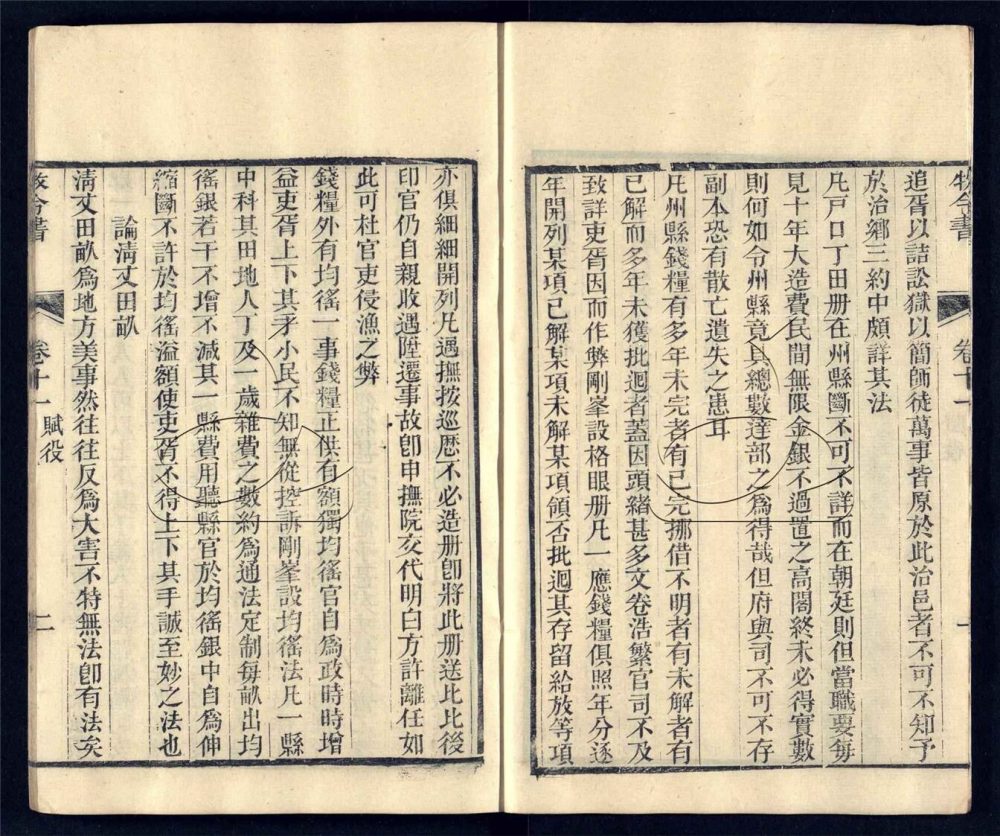 牧令書
卷十一
一
追胥以詰訟獄以簡師徒萬事皆原於此治邑者不可不知予
於治鄉三約中頗詳其法
凡戸口丁田册在州縣斷不可不詳而在朝廷則但當職要毎
見十年大造費民間無限金銀不過置之高閣終未必得實數
則何如令州縣竟具總數達部之爲得哉但府與司不可不存
副本恐有散亡遺失之患耳
凡州縣錢糧有多年未完者有已完挪借不明者有未解者有
已解而多年未獲批迴者蓋因頭緒甚多文卷浩繁官司不及
致詳吏胥因而作弊剛峯設格眼册凡一應錢糧俱照年分逐
年開列某項已解某項未解某項領否批迴其存留給放等項
亦俱細細開列凡遇撫按巡歷不必造册卽將此册送比比後
印官仍自親收遇陞遷事故卽申撫院交代明白方許離任如
此可杜官吏侵漁之弊
錢糧外有均徭一事錢糧正供有額獨均徭官自爲政時時增
益吏胥上下其矛小民不知無從控訴剛峯設均徭法凡一縣
中科其田地人丁及一歲雜費之數約爲通法定制每畝出均
徭銀若干不增不減其一縣費用聽縣官於均徭銀中自爲伸
縮斷不許於均徭溢額使吏胥不得上下其手誠至妙之法也
論淸丈田畝
淸丈田畝爲地方美事然往往反爲大害不特無法卽有法矣
牧令書
卷十一 賦役
二